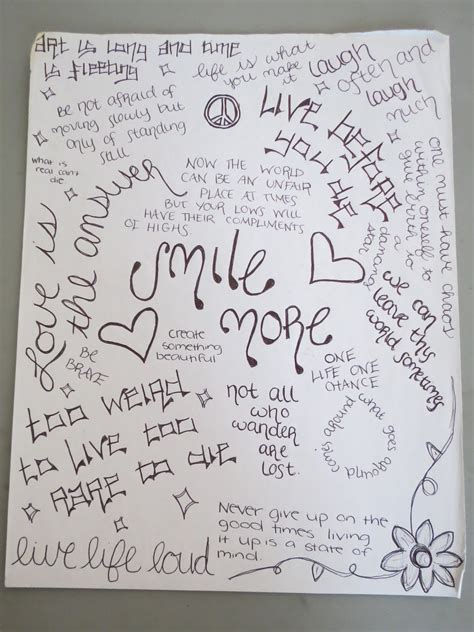 art is long and time
is fleeting
life is what
you make
it
laugh
often and
laugh
much
Be not afraid of
moving slowly but
only of standing
still
LIVE before
you die
what is
real can't
die
Love is
the answer
NOW THE WORLD
CAN BE AN UNFAIR
PLACE AT TIMES
BUT YOUR LOWS WILL
HAVE THEIR COMPLIMENTS
OF HIGHS
one must have chaos
within oneself to
give birth to
a
dancing
star
we can
leave this
world sometimes
smile
more
create
something
beautiful
BE
BRAVE
ONE
LIFE ONE
CHANCE
too weird
to live too
rare to die
not all
who
wander
are
lost.
what goes
around
comes around
Never give up on the
good times living
it up is a state of
mind.
live life loud